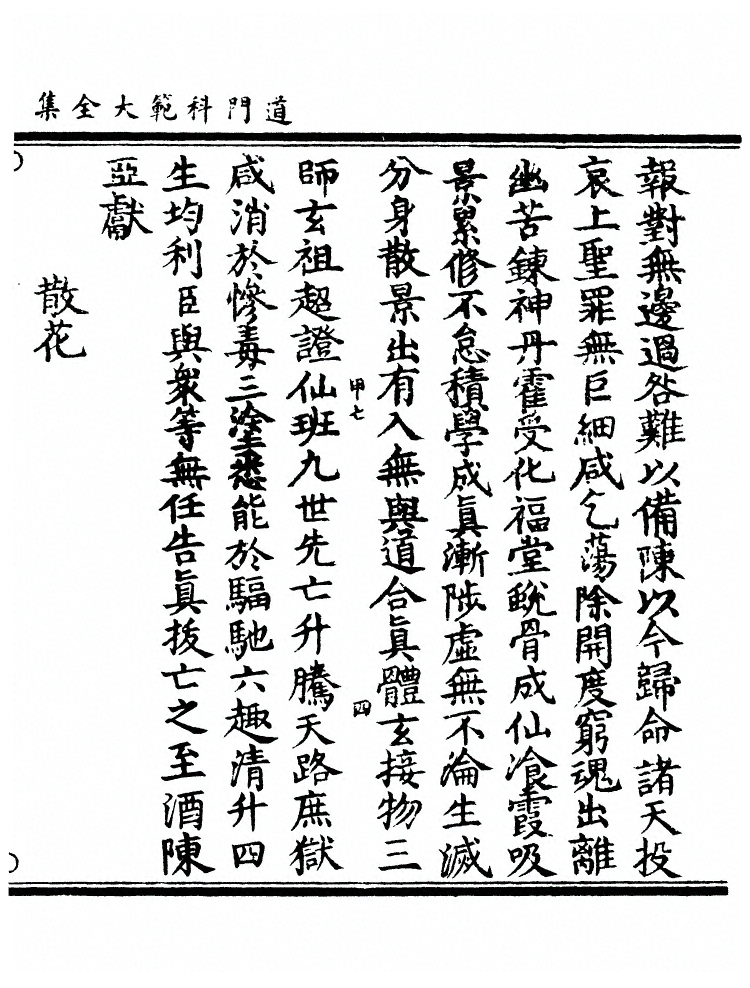 道門科範大全集
報對無邊過咎難以備陳以今歸命諸天投
哀上聖罪無巨細咸乞蕩除開度窮魂出離
幽苦鍊神丹霍受化福堂蛻骨成仙飡霞吸
景累修不怠積學成眞漸陟虛無不淪生滅
分身散景出有入無與道合眞體玄接物三
甲七
四
師玄祖超證仙班九世先亡升騰天路庶獄
咸消於慘毒三塗悉能於驅馳六趣清升四
生均利臣與衆等無任告眞拔亡之至酒陳
亞獻
散花